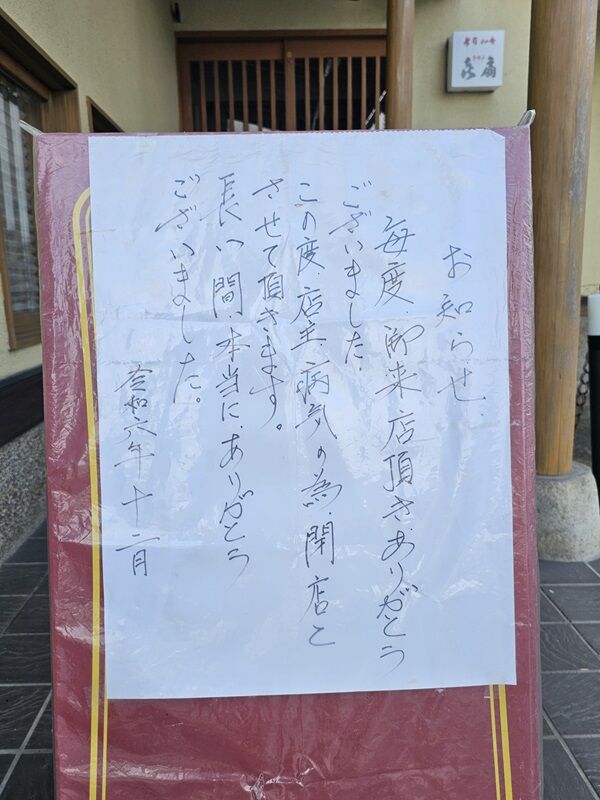 お知らせ、
毎度、御来店頂き、ありがとう
ございました、
この度、店主病気の為、閉店と
させて頂きます。
長い間、本当に、ありがとう
ございました。
令和六年十二月